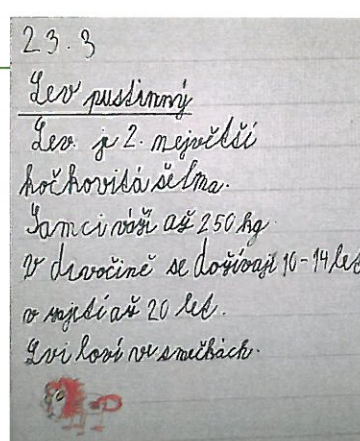 23.3
Lev pustinný
Lev je 2. největší
kočkovitá šelma.
Samci váží až 250 kg
V divočině se dožívají 10-14 let
v zajetí až 20 let.
Lvi loví ve smečkách.